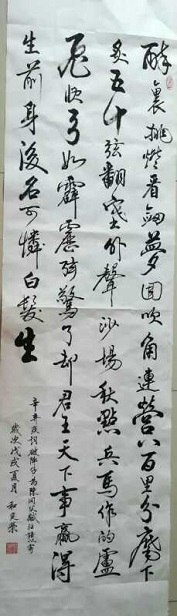 醉裏挑燈看劍夢回吹角連營八百里分麾下
炙五十弦翻塞外聲沙場秋點兵馬作的盧
飛快弓如霹靂弦驚了却君王天下事贏得
生前身後名可憐白髮生
辛弃疾詞破陣子為陳同甫賦壯詞寄
歲次戊戌夏月